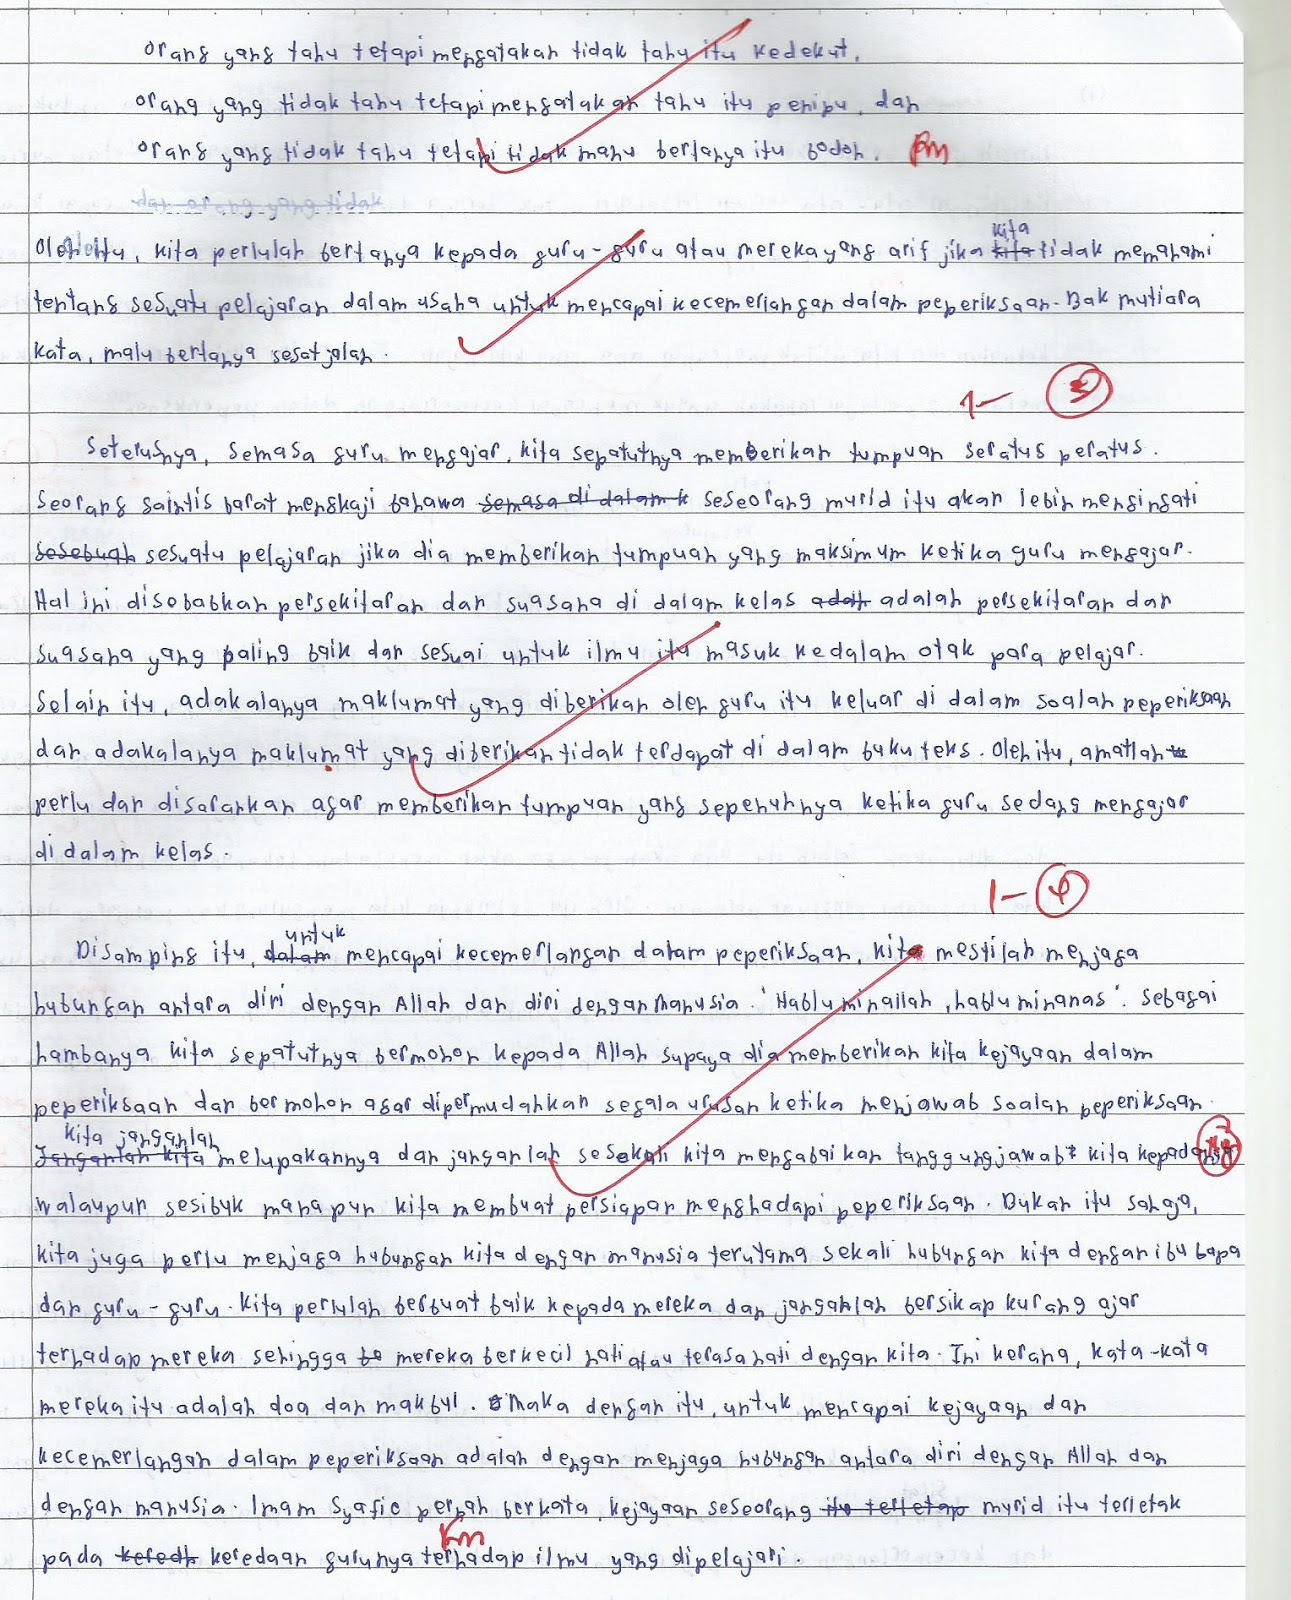 orang yang tahu tetapi mengatakan tidak tahu itu kedekut,
orang yang tidak tahu tetapi mengatakan tahu itu penipu, dan
orang yang tidak tahu tetapi tidak mahu bertanya itu bodoh. Pm
kita
Oleh itu, kita perlulah bertanya kepada guru-guru atau mereka yang arif jika kita tidak memahami
tentang sesuatu pelajaran dalam usaha untuk mencapai kecemerlangan dalam peperiksaan. Bak mutiara
kata, malu bertanya sesat jalan.
Seterusnya, semasa guru mengajar, kita sepatutnya memberikan tumpuan seratus peratus.
Seorang saintis barat mengkaji bahawa semasa di dalam k seseorang murid itu akan lebih mengingati
sesebuah sesuatu pelajaran jika dia memberikan tumpuan yang maksimum ketika guru mengajar.
Hal ini disebabkan persekitaran dan suasana di dalam kelas adalh adalah persekitaran dan
suasana yang paling baik dan sesuai untuk ilmu itu masuk kedalam otak para pelajar.
Selain itu, adakalanya maklumat yang diberikan oleh guru itu keluar di dalam soalan peperiksaan
dan adakalanya maklumat yang diberikan tidak terdapat di dalam buku teks. Oleh itu, amatlah
perlu dan disarankan agar memberikan tumpuan yang sepenuhnya ketika guru sedang mengajar
di dalam kelas.
1-4
untuk
Disamping itu, dalam mencapai kecemerlangan dalam peperiksaan, kita mestilah menjaga
hubungan antara diri dengan Allah dan diri dengan manusia. 'Habluminallah, habluminanas'. Sebagai
hambanya kita sepatutnya bermohon kepada Allah supaya dia memberikan kita kejayaan dalam
peperiksaan dan bermohon agar dipermudahkan segala urusan ketika menjawab soalan peperiksaan.
Kita janganlah
Janganlah kita melupakannya dan janganlah sesekali kita mengabaikan tanggungjawab kita
walaupun sesibuk manapun kita membuat persiapan menghadapi peperiksaan. Bukan itu sahaja,
kita juga perlu menjaga hubungan kita dengan manusia terutama sekali hubungan kita dengan ibu bapa
dan guru-guru. Kita perlulah berbuat baik kepada mereka dan janganlah bersikap kurang ajar
terhadap mereka sehingga be mereka berkecil hati atau terasa hati dengan kita. Ini kerana, kata-kata
mereka itu adalah doa dan makbul. Maka dengan itu, untuk mencapai kejayaan dan
kecemerlangan dalam peperiksaan adalah dengan menjaga hubungan antara diri dengan Allah dan
dengan manusia. Imam Syafie pernah berkata, kejayaan seseorang itu terletap murid itu terletak
pada keredh keredaan gurunya terhadap ilmu yang dipelajari.